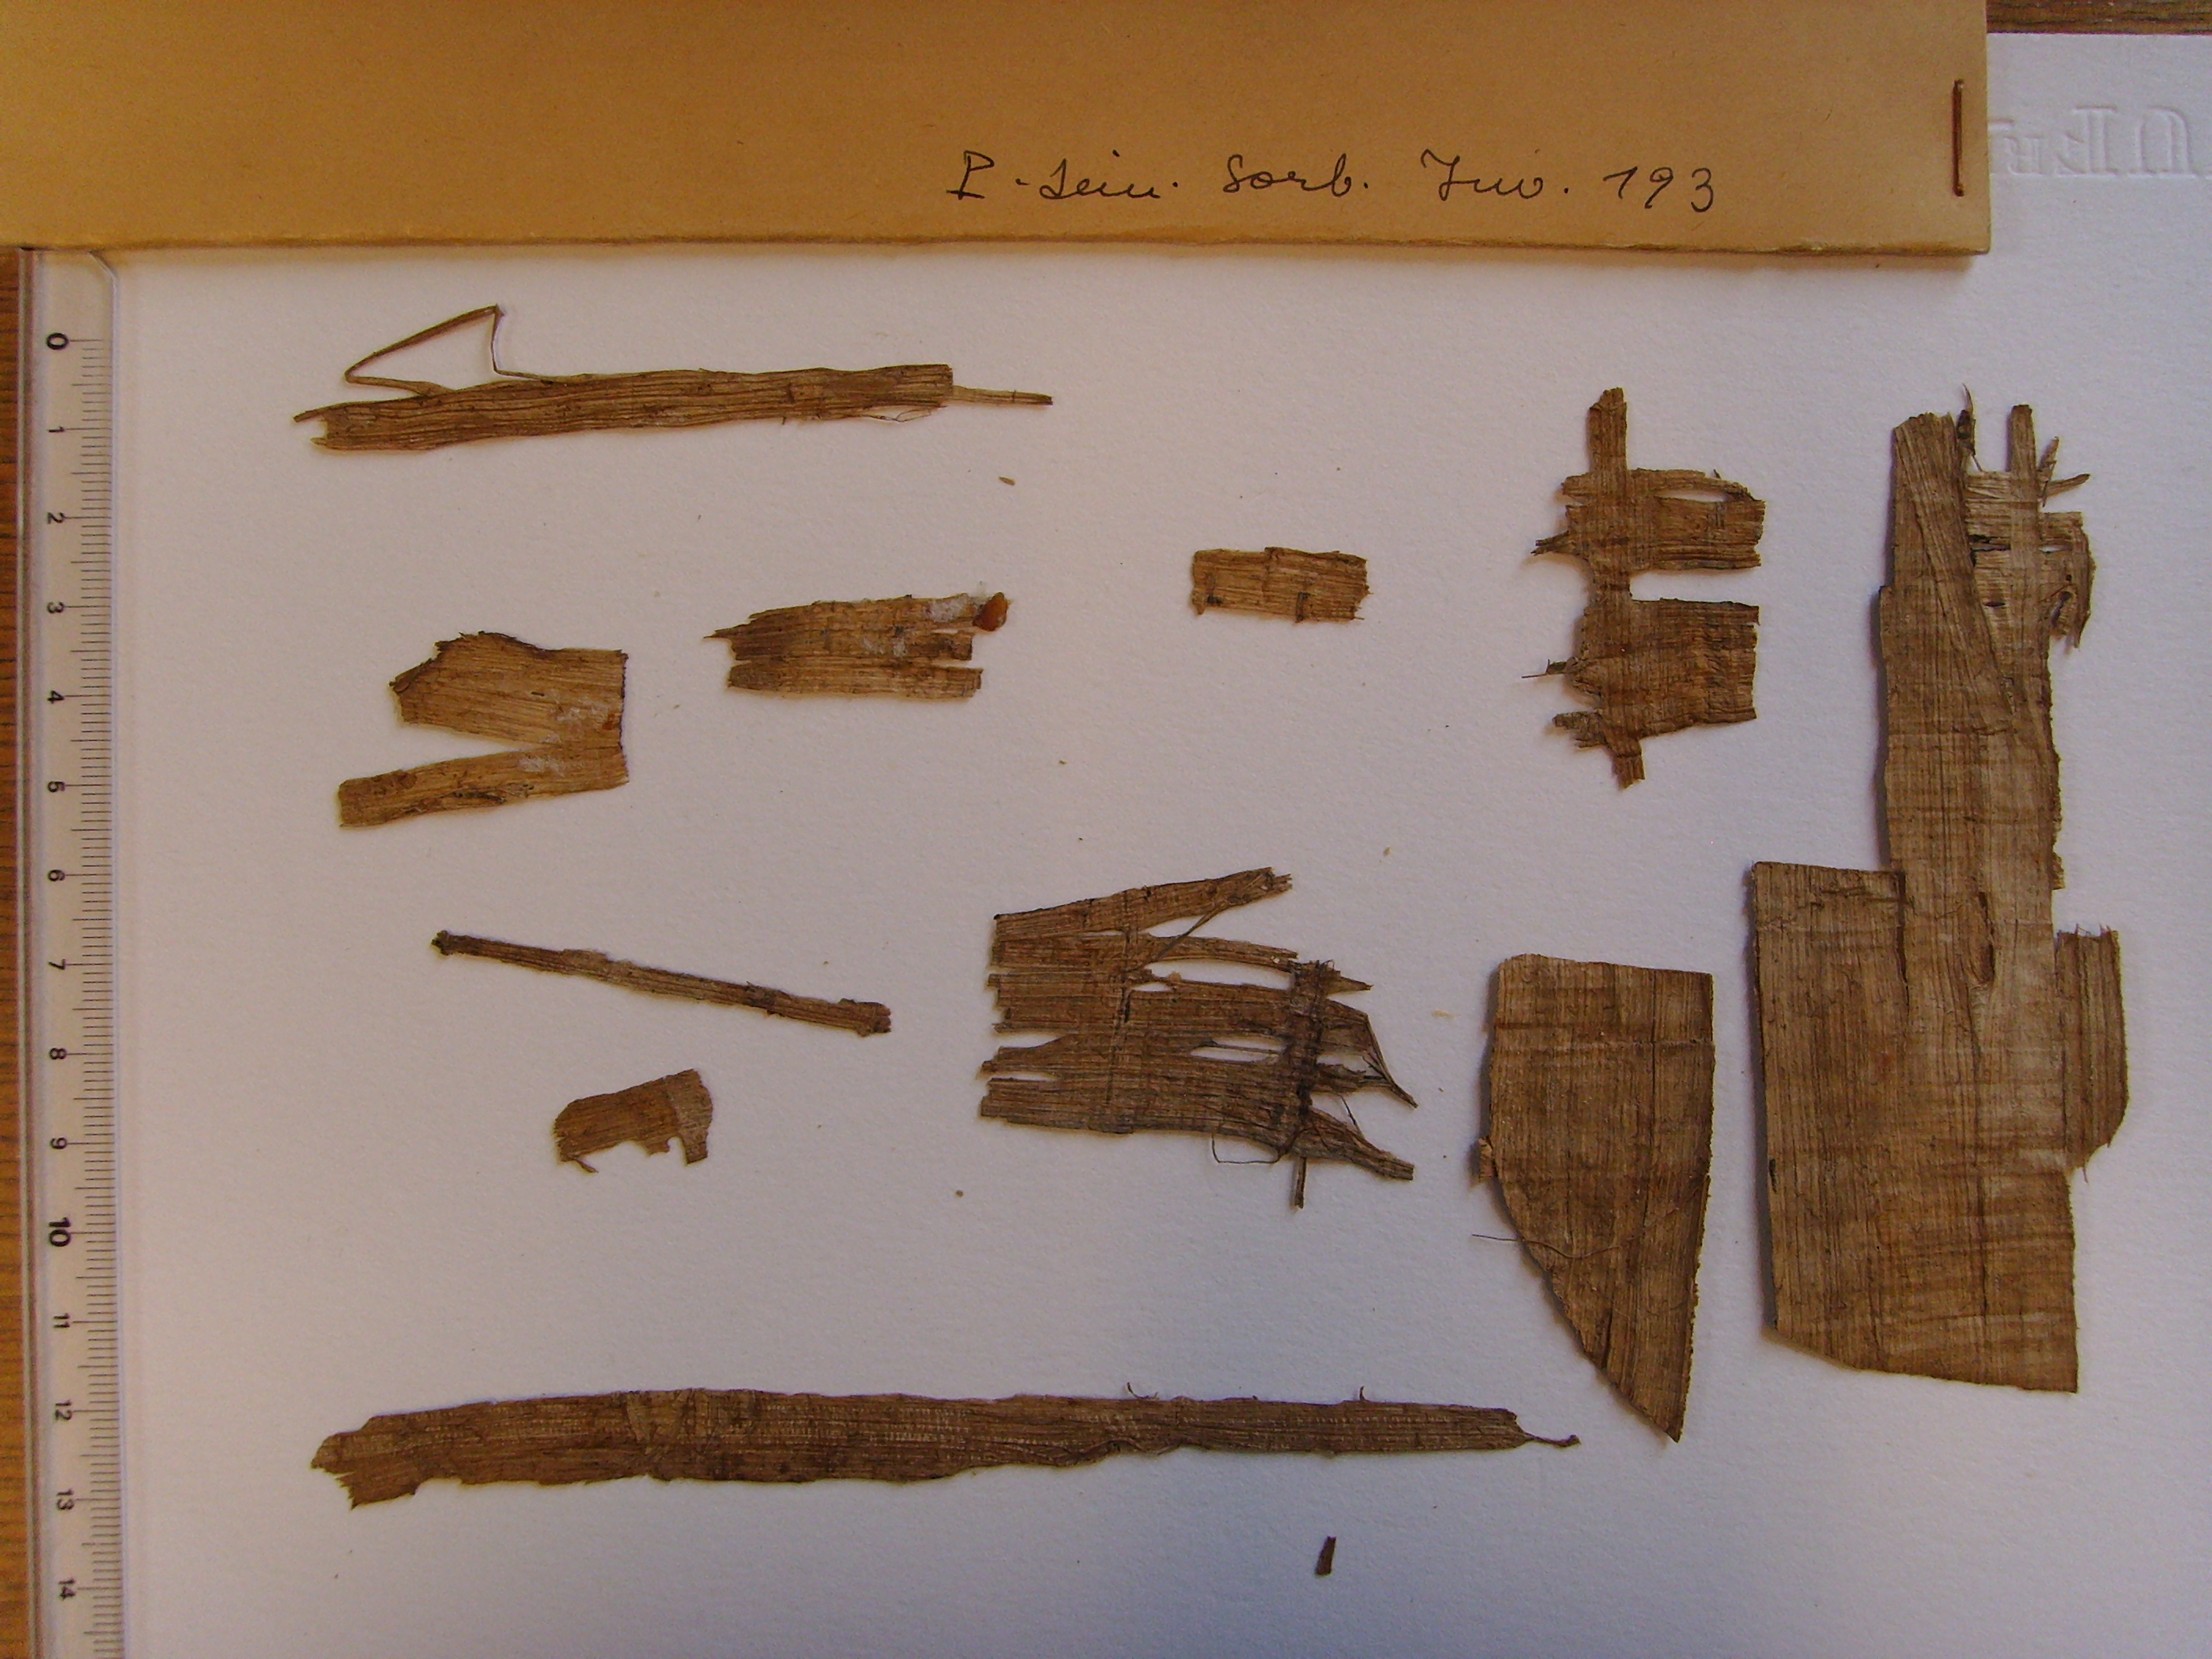 P. Sein. Sorb. Inv. 193
0
1
2
3
4
5
6
7
8
9
10
11
12
13
14